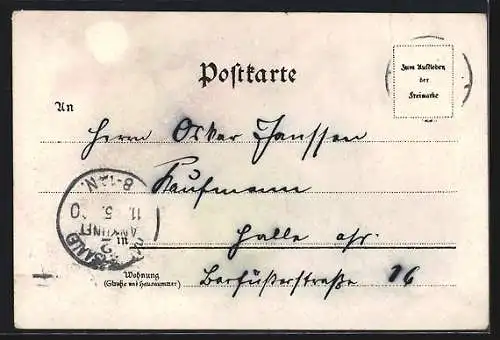 Postkarte
Zum Aufkleben
der
Freimarke
An
Herrn Oskar Janssen
Kaufmann
Halle a/S.
Wohnung
(Straße und Hausnummer)
Barfüßerstraße 16
8-12 N.
11 5
ANKUNFT
2